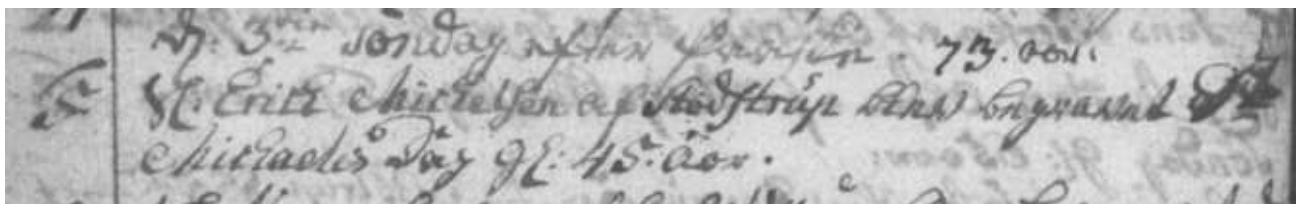 D: 3die Søndag efter Paaske. 73. aar.
5 Sl. Erich Michelsen af Stodstrup blev begravet St
Michaelis Dag gl: 45. Aar.